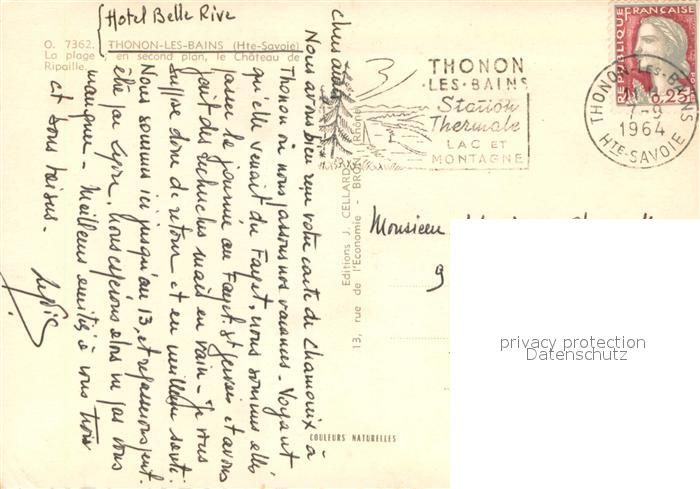 Hotel Belle Rive
O. 7362. THONON-LES-BAINS (Hte-Savoie)
La plage ; en second plan, le Château de
Ripaille.
Chers amis
Nous avons bien reçu votre carte de Chamonix à
Thonon où nous passons nos vacances - Voyant
qu'elle venait du Fayet, nous sommes allés
passer la journée au Fayet St Gervais et avons
fait des recherches mais en vain - Je vous
suppose donc de retour et en meilleure santé.
Nous sommes ici jusqu'au 13, et repasserons peut
être par Lyon. Nous espérons alors ne pas vous
manquer - Meilleures amitiés à vous trois
et bons baisers -
Editions J. CELLARD
13, rue de l'Economie - BRON (Rhône)
COULEURS NATURELLES
THONON
-LES-BAINS
Station
Thermale
LAC ET
MONTAGNE
REPUBLIQUE FRANÇAISE
0,25
THONON-LES-BAINS
7-9
1964
HTE-SAVOIE
Monsieur
9
privacy protection
Datenschutz